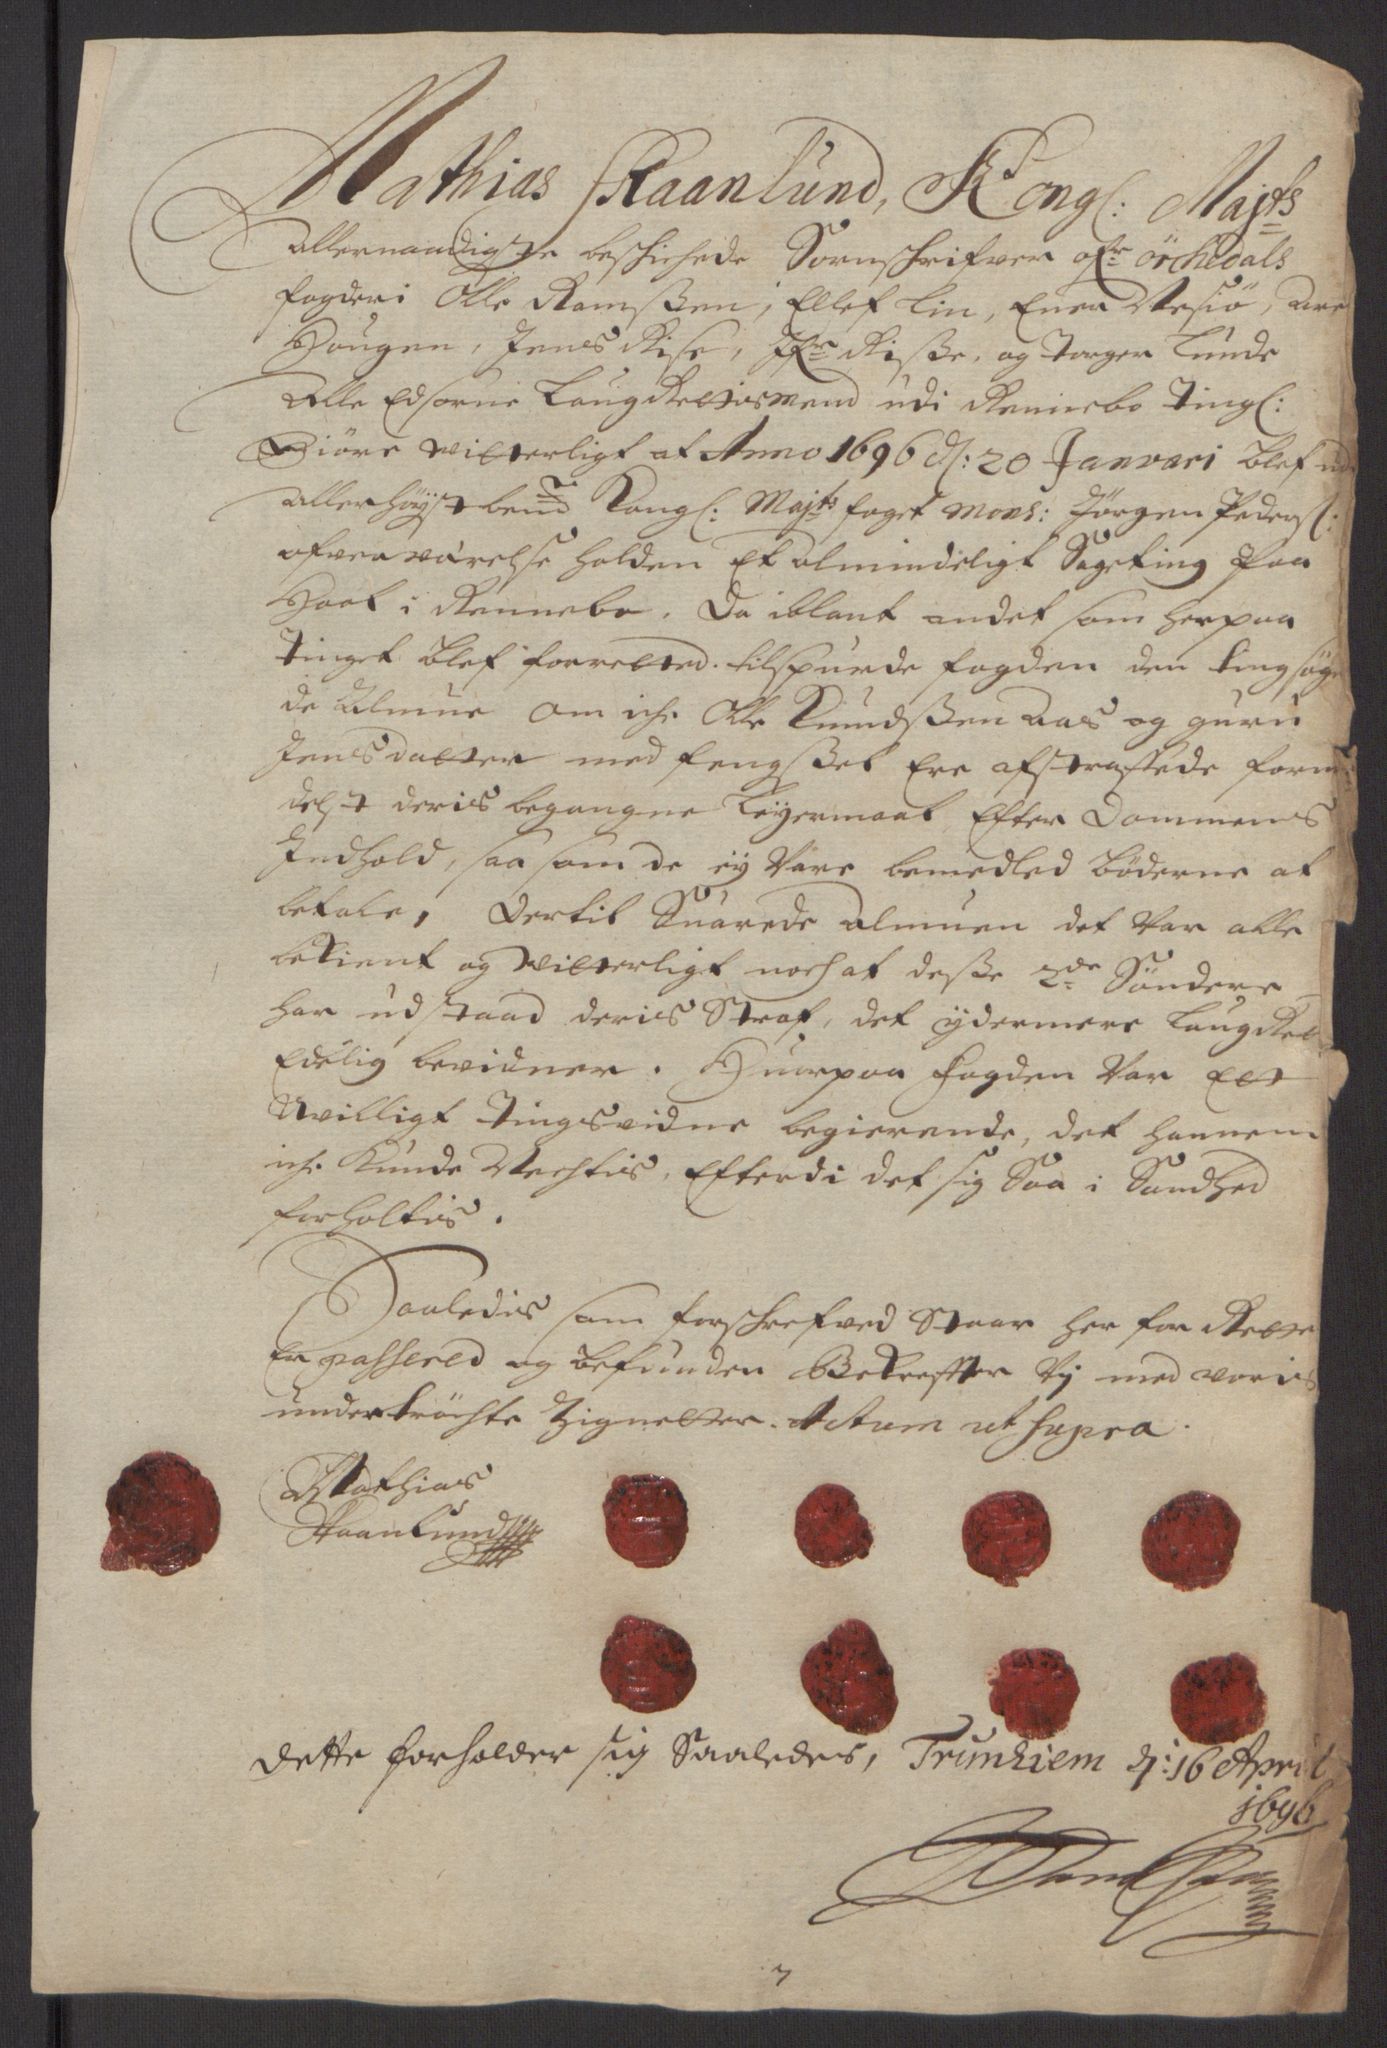 Mathias Skaanlund, Kongl: Majts
allernaadigste beschichede Sornschrifver ofr Örchedals
fogderi Olle Ramsßen, Ellef Lin, Ener Mesiö, Are
Hougen, Jens Rise, Ifr Risße, og Torger Lunde
Alle Edsorne Laugrettismend udi Rennebo Tingl:
Giöre vitterligt at Anno 1696 dl: 20 Januari blef ud
allerhöyst bemte Kongl: Majts foget Mons: Jörgen Pedersl:
ofververelse holden Et almindeligt Sageting paa
Hoel i Rennebo, Da iblant andet som herpaa
Tinget blef forretted. tilspurde fogden den tingsöge
de Almue om iche Olle Knudsßen Aas og guru
Jensdatter med fengßel Ere afstraffede form
delst deris begangne Leyermaal Efter Dommens
Indhold, saa som de ey Vare bemedled böderne at
betale, Dertil Suarede almuen det Var alle
bekient og vitterligt noch at desße 2de Söndere
har udstaad deris Straf, det ydermere Laugret
Edelig bevidner. Huorpaa fogden Var Ett
Uvilligt Tingsvidne begierende, det hannem
iche Kunde Nechtis, Efterdi det sig Saa i Sandhed
forholtis.
Saaledis som forschrefved Staar her for Rette
Er passered og befunden Bekreffter Vy med voris
undertröchte Zignetter. Actum ut supra.
Mathias
Skaanlund
dette forholder sig Saaledes, Trundhiem dl: 16 April
1696
7